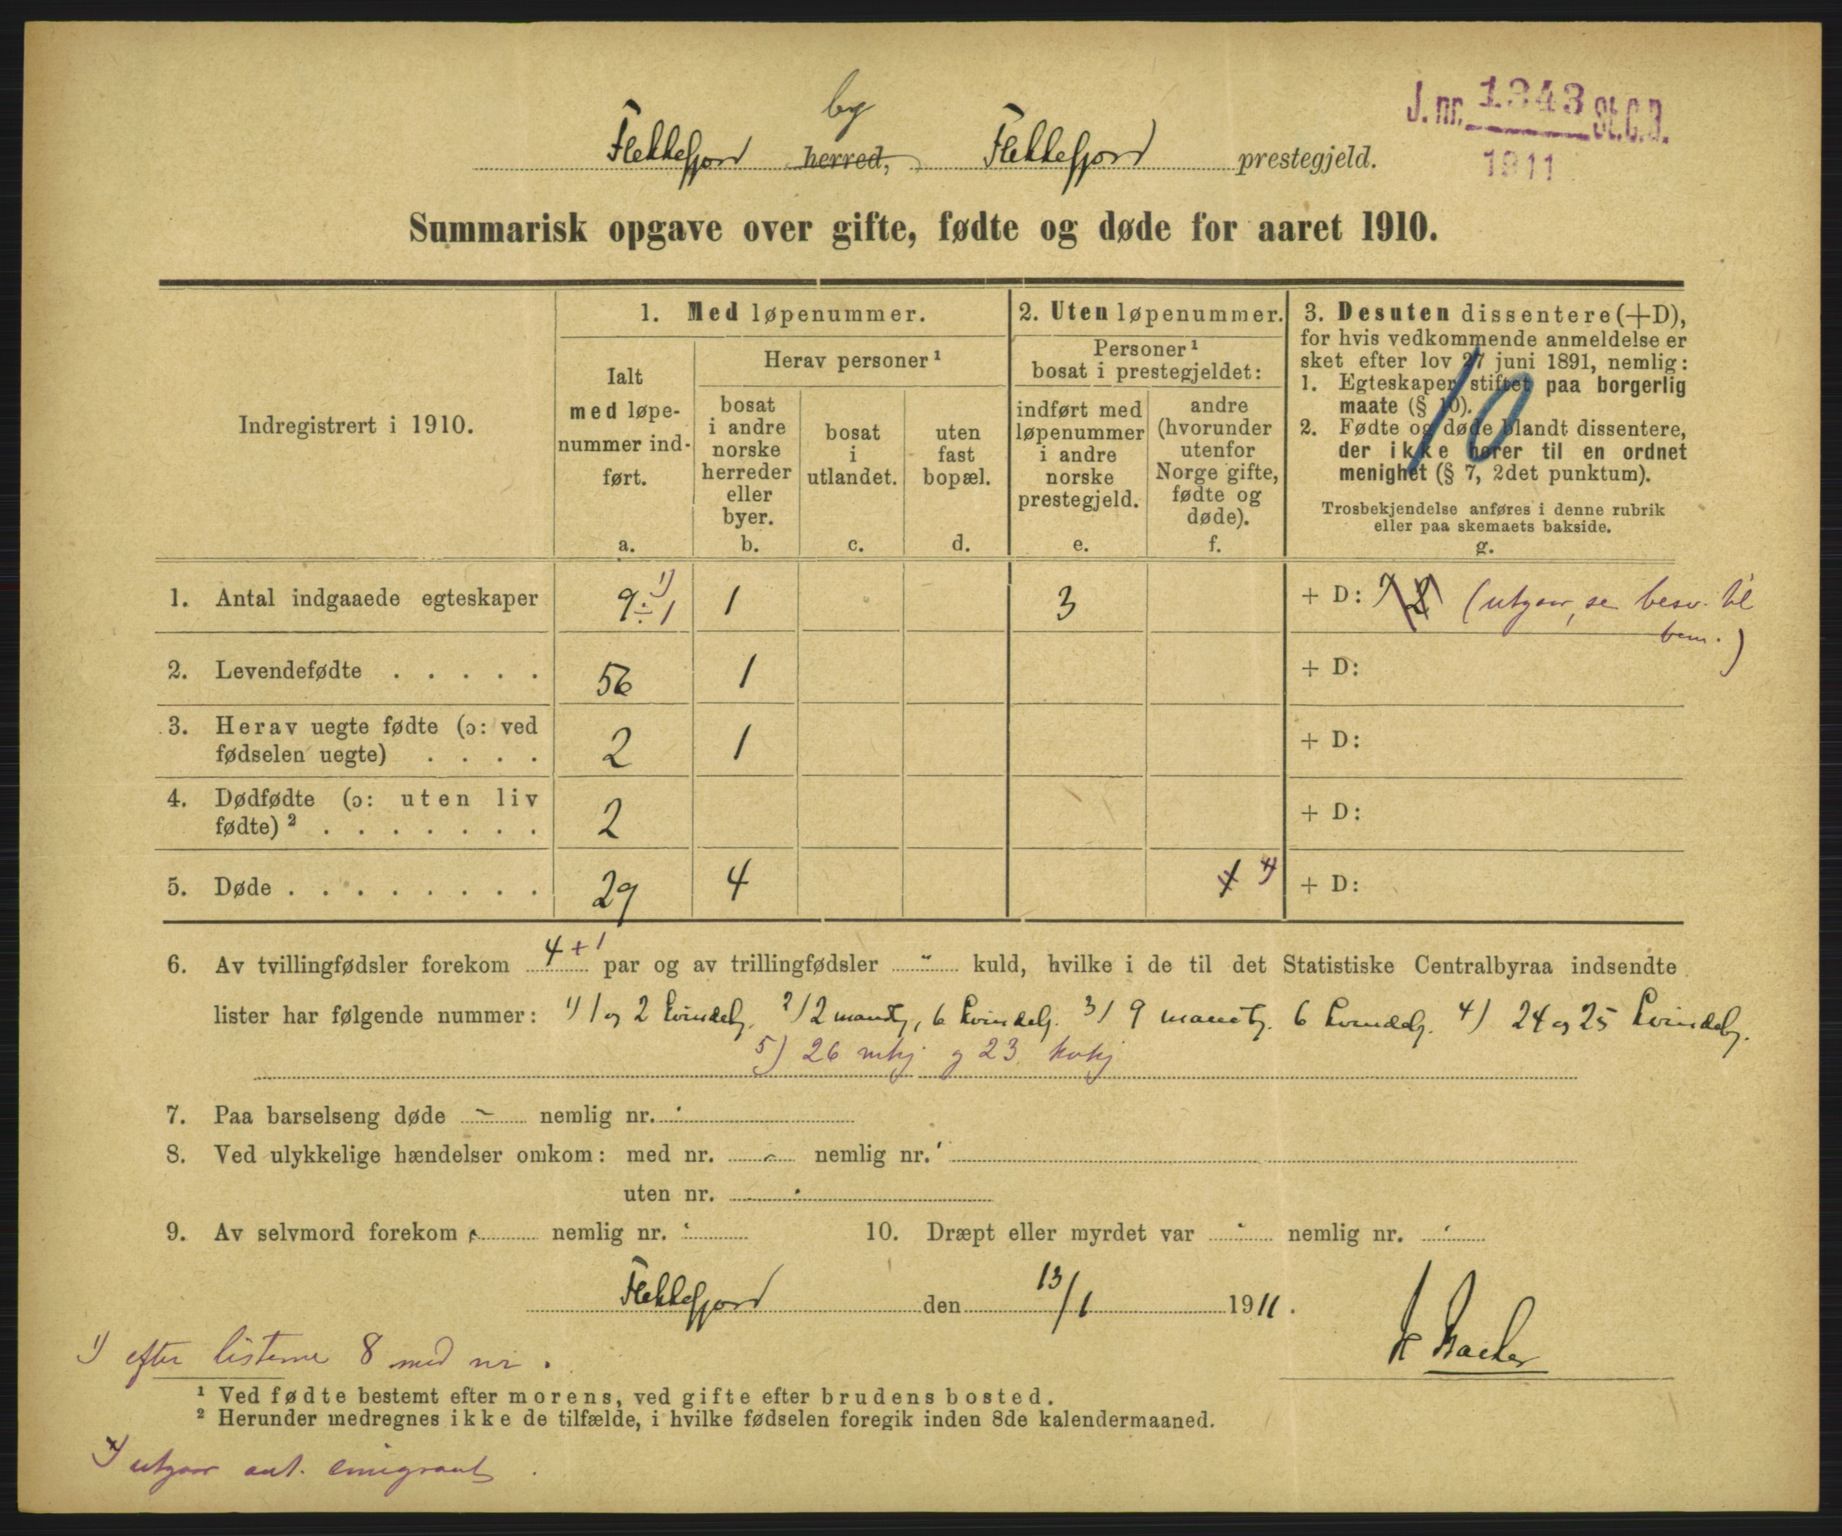 by
Flekkefjord herred, Flekkefjord prestegjeld.
J. nr. 1343 St.C.B.
1911
Summarisk opgave over gifte, fødte og døde for aaret 1910.
Indregistrert i 1910.
1. Med løpenummer.
Ialt
med løpe-
nummer ind-
ført.
a.
Herav personer ¹
bosat
i andre
norske
herreder
eller
byer.
b.
bosat
i
utlandet.
c.
uten
fast
bopæl.
d.
2. Uten løpenummer.
Personer ¹
bosat i prestegjeldet:
indført med
løpenummer
i andre
norske
prestegjeld.
e.
andre
(hvorunder
utenfor
Norge gifte,
fødte og
døde).
f.
3. Desuten dissentere (+D),
for hvis vedkommende anmeldelse er
sket efter lov 27 juni 1891, nemlig:
1. Egteskaper stiftet paa borgerlig
maate (§ 10).
2. Fødte og døde blandt dissentere,
der ikke hører til en ordnet
menighet (§ 7, 2det punktum).
Trosbekjendelse anføres i denne rubrik
eller paa skemaets bakside.
g.
10
1. Antal indgaaede egteskaper 9 ÷ 1 ¹) 1 3 + D: 2 (utgaar, se besv. til
bem.)
2. Levendefødte . . . . . 56 1 + D:
3. Herav uegte fødte (ɔ: ved
fødselen uegte) . . . . 2 1 + D:
4. Dødfødte (ɔ: uten liv
født​e) ² . . . . . . . 2 + D:
5. Døde . . . . . . . . 29 4 + D:
6. Av tvillingfødsler forekom 4 + 1 par og av trillingfødsler " kuld, hvilke i de til det Statistiske Centralbyraa indsendte
lister har følgende nummer: 1) 1 og 2 kvindekj. 2) 2 mandkj, 6 kvindekj. 3) 9 mandkj. 6 kvindekj. 4) 24 og 25 kvindekj.
5) 26 mkj og 23 kvkj
7. Paa barselseng døde - nemlig nr.
8. Ved ulykkelige hændelser omkom: med nr. - nemlig nr.
uten nr.
9. Av selvmord forekom nemlig nr. 10. Dræpt eller myrdet var nemlig nr.
Flekkefjord den 13/1 1911.
1) efter listerne 8 med nr.
¹ Ved fødte bestemt efter morens, ved gifte efter brudens bosted.
² Herunder medregnes ikke de tilfælde, i hvilke fødselen foregik inden 8de kalendermaaned.
utgaar ant. emigrant.